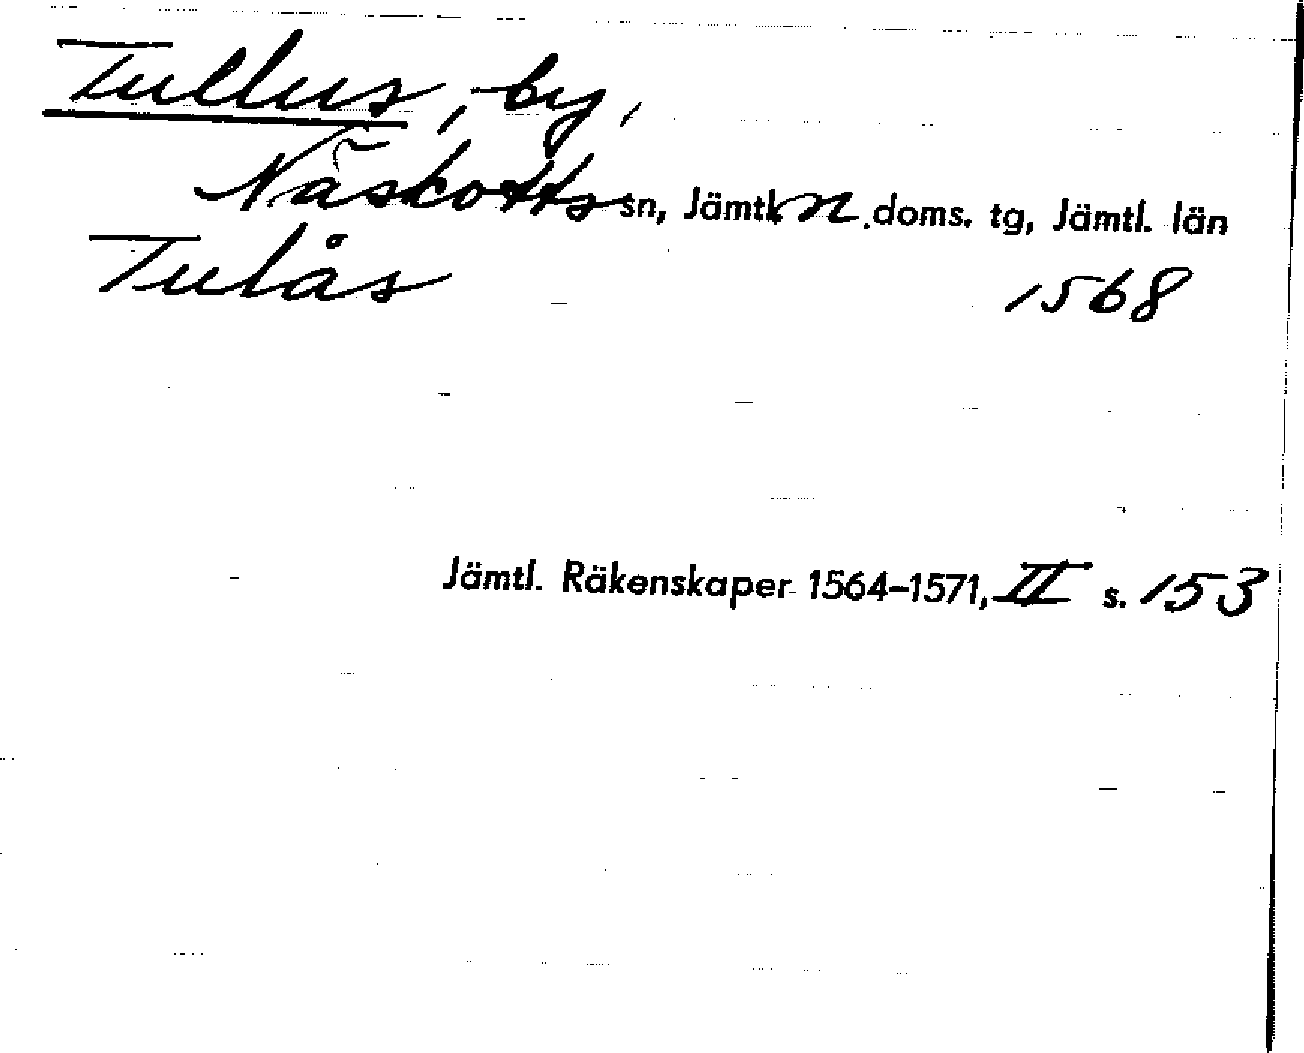 Tullus, by,
Näskotts sn, Jämtl. n. doms. tg, Jämtl. län
Tulås 1568
Jämtl. Räkenskaper 1564–1571, II s. 153